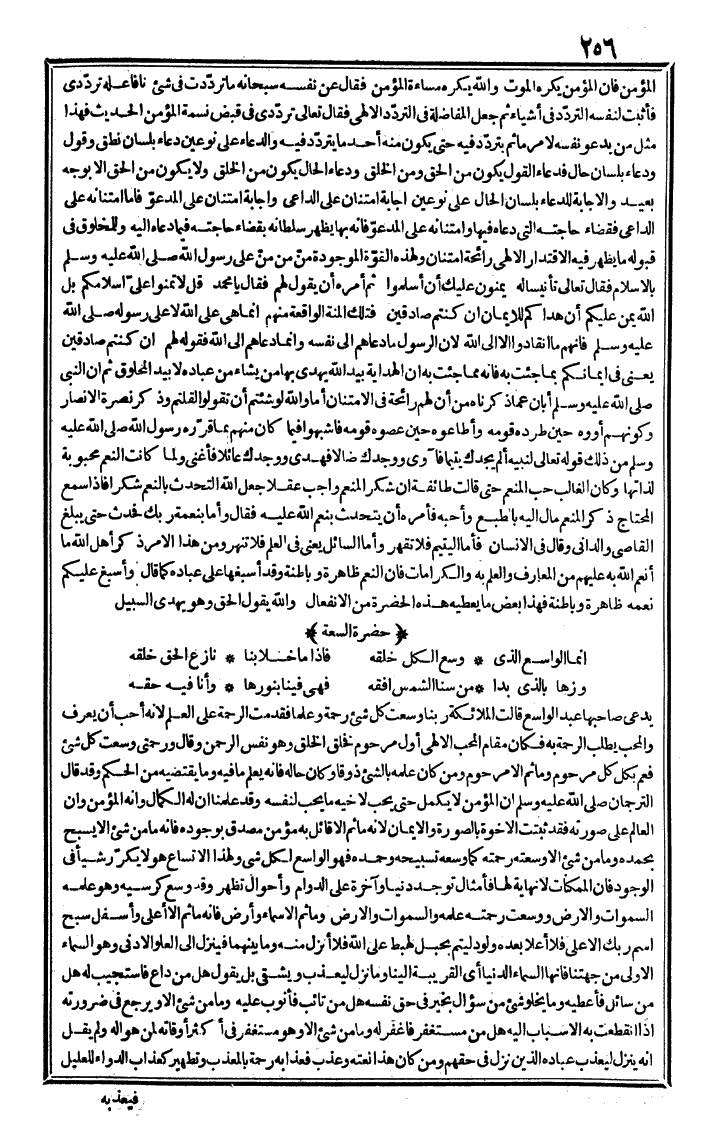 ٢٥٦
المؤمن فان المؤمن يكره الموت والله يكره مساءة المؤمن فقال عن نفسه سبحانه ما ترددت فى شئ نا فاعله ترددى
فأثبت لنفسه التردّد فى أشياء ثم جعل المفاضلة فى التردّد الالهى فقال تعالى ترددى فى قبض نسمة المؤمن الحديث فهذا
مثل من يدعو نفسه لامر ما ثم يتردّد فيه حتى يكون منه أحد ما يتردد فيه والدعاء على نوعين دعاء بلسان نطق وقول
ودعاء بلسان حال فدعاء القول يكون من الحق ومن الخلق ودعاء الحال يكون من الخلق ولا يكون من الحق الا بوجه
بعيد والاجابة للدعاء بلسان الحال على نوعين اجابة امتنان على الداعى واجابة امتنان على المدعو فاما امتنانه على
الداعى فقضاء حاجته التى دعاه فيها وامتنانه على المدعوّ فانه بها يظهر سلطانه بقضاء حاجته فيما دعاه اليه وللمخلوق فى
قبوله ما يظهر فيه الاقتدار الالهى رائحة امتنان ولهذه القوّة الموجودة منّ من منّ على رسول الله صلى الله عليه وسلم
بالاسلام فقال تعالى تأنيساله يمنون عليك أن أسلموا ثم أمره أن يقول لهم فقال يا محمد قل لا تمنوا علىّ اسلامكم بل
الله يمن عليكم أن هداكم للايمان ان كنتم صادقين فتلك المنة الواقعة منهم انما هى على الله لا على رسوله صلى الله
عليه وسلم فانهم ما انقادوا الا الى الله لان الرسول ما دعاهم الى نفسه وانما دعاهم الى الله فقوله لهم ان كنتم صادقين
يعنى فى ايمانكم بما جئت به فانه مما جئت به ان الهداية بيد الله يهدى بها من يشاء من عباده لا بيد المخلوق ثم ان النبى
صلى الله عليه وسلم أبان عما ذكرناه من أن لهم رائحة فى الامتنان أما والله لو شئتم أن تقولوا لقلتم وذكر نصرة الانصار
وكونهم أووه حين طرده قومه وأطاعوه حين عصوه قومه فاشبهوا فيما كان منهم بما قرّره رسول الله صلى الله عليه
وسلم من ذلك قوله تعالى لنبيه ألم يجدك يتيما فآوى ووجدك ضالا فهدى ووجدك عائلا فأغنى ولما كانت النعم محبوبة
لذاتها وكان الغالب حب المنعم حتى قالت طائفة ان شكر المنعم واجب عقلا جعل الله التحدث بالنعم شكرا فاذا سمع
المحتاج ذكر المنعم مال اليه بالطبع وأحبه فأمره أن يتحدث بنعم الله عليه فقال وأما بنعمة ربك فحدث حتى يبلغ
القاصى والدانى وقال فى الانسان فأما اليتيم فلا تقهر وأما السائل يعنى فى العلم فلا تنهر ومن هذا الامر ذكر أهل الله ما
أنعم الله به عليهم من المعارف والعلم به والكرامات فان النعم ظاهرة وباطنة وقد أسبغها على عباده كما قال وأسبغ عليكم
نعمه ظاهرة وباطنة فهذا بعض ما يعطيه هذه الحضرة من الانفعال والله يقول الحق وهو يهدى السبيل
﴿حضرة السعة﴾
انما الواسع الذى * وسع الكل خلقه فاذا ما خلا بنا * نازع الحق خلقه
وزها بالذى بدا * من سنا الشمس افقه فهى فينا بنورها * وأنا فيه حقه
يدعى صاحبها عبد الواسع قالت الملائكة ربنا وسعت كل شئ رحمة وعلما فقدمت الرحمة على العلم لانه أحب أن يعرف
والمحب يطلب الرحمة به فكان مقام المحب الالهى أول مرحوم فخلق الخلق وهو نفس الرحمن وقال ورحمتى وسعت كل شئ
فعم بكل كل مرحوم وما ثم الا مرحوم ومن كان علمه بالشئ ذوقا وكان حاله فانه يعلم ما فيه وما يقتضيه من الحكم وقد قال
الترجمان صلى الله عليه وسلم ان المؤمن لا يكمل حتى يحب لاخيه ما يحب لنفسه وقد علمنا ان له الكمال وانه المؤمن وان
العالم على صورته فقد ثبتت الاخوة بالصورة والايمان لانه ما ثم الا قائل به مؤمن مصدق بوجوده فانه ما من شئ الا يسبح
بحمده وما من شئ الا وسعته رحمته كما وسعه تسبيحه وحمده فهو الواسع لكل شئ ولهذا الاتساع هو لا يكرّر شيأ فى
الوجود فان الممكنات لا نهاية لها فأمثال توجد دنيا وآخرة على الدوام وأحوال تظهر وقد وسع كرسيه وهو علمه
السموات والارض ووسعت رحمته علمه والسموات والارض وما ثم الا سماء وأرض فانه ما ثم الا أعلى وأسفل سبح
اسم ربك الاعلى فلا أعلا بعده ولو دليتم بحبل لهبط على الله فلا أنزل منه وما بينهما فينزل الى العلو الادنى وهو السماء
الاولى من جهتنا فانها السماء الدنيا أى القريبة الينا وما نزل ليعذب ويشقى بل يقول هل من داع فاستجيب له هل
من سائل فأعطيه وما يخلو شئ من سؤال بخير فى حق نفسه هل من تائب فأتوب عليه وما من شئ الا ويرجع فى ضرورته
اذا انقطعت به الاسباب اليه هل من مستغفر فاغفر له وما من شئ الا وهو مستغفر فى أكثر أوقاته لمن هو اله ولم يقل
انه ينزل ليعذب عباده الذين نزل فى حقهم ومن كان هذا نعته وعذب فعذابه رحمة بالمعذب وتطهير كعذاب الدواء للعليل
فيعذبه